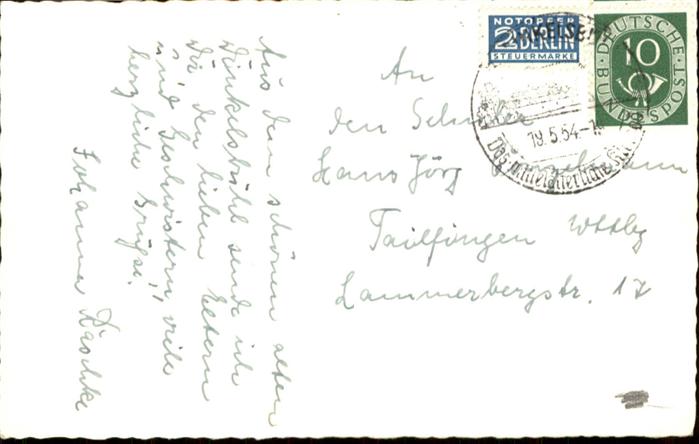 Aus dem schönen alten
Dinkelsbühl sende ich
Dir den lieben Eltern
und Geschwistern, viele
herzliche Grüße.
Johanna
NOTOPFER
2 BERLIN
STEUERMARKE
DEUTSCHE
BUNDESPOST
10
19.5.54
Das mittelalterliche
An
den Schüler
Hans Jörg
Tailfingen Wttbg
Lammerbergstr. 17